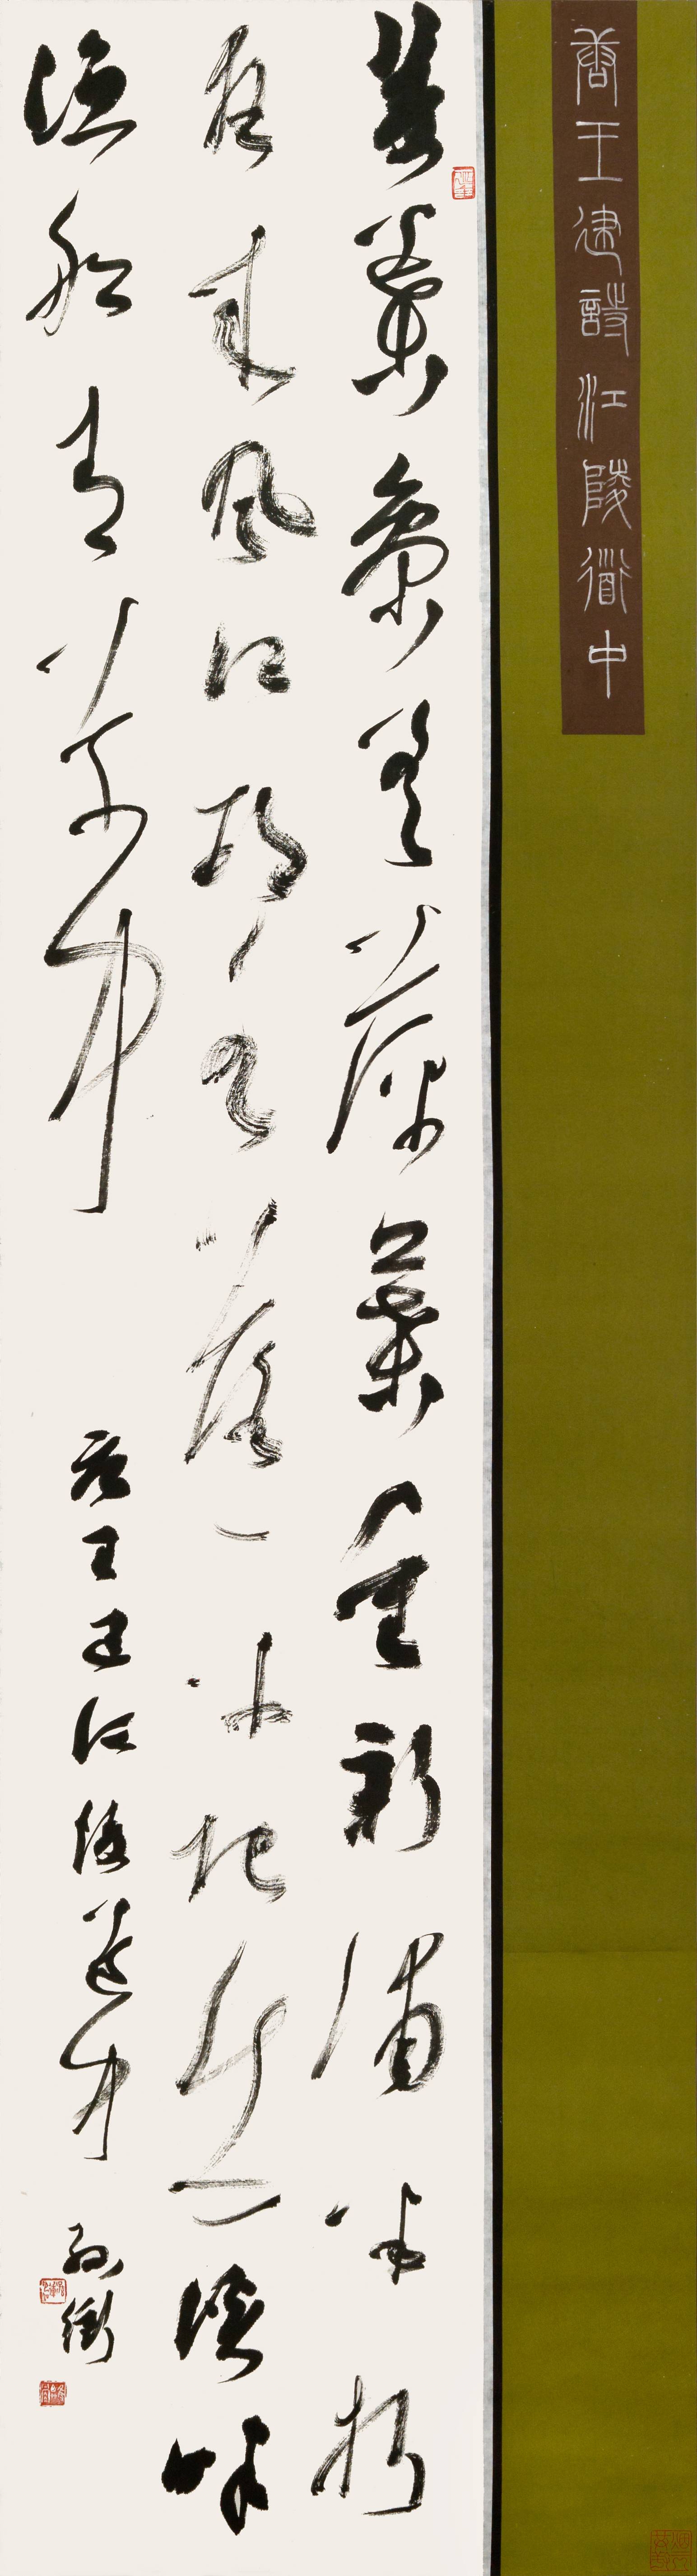 唐王建詩江陵道中
菱葉參差萍葉重新蒲半折
夜來風江邨水落平地出溪畔
漁船青草中
唐王建江陵道中
孫衛